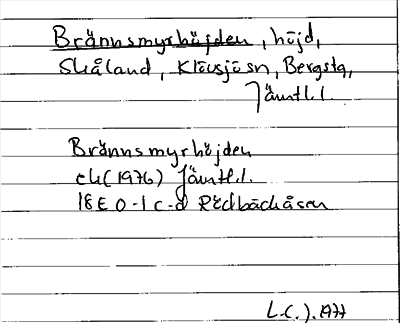 Brännsmyrhöjden, höjd,
Skåland, Klövsjö sn, Bergs tg,
Jämtl.l.
Brännsmyrhöjden
ek (1976) Jämtl.l.
18E 0-1 c-d Rödbäckåsen